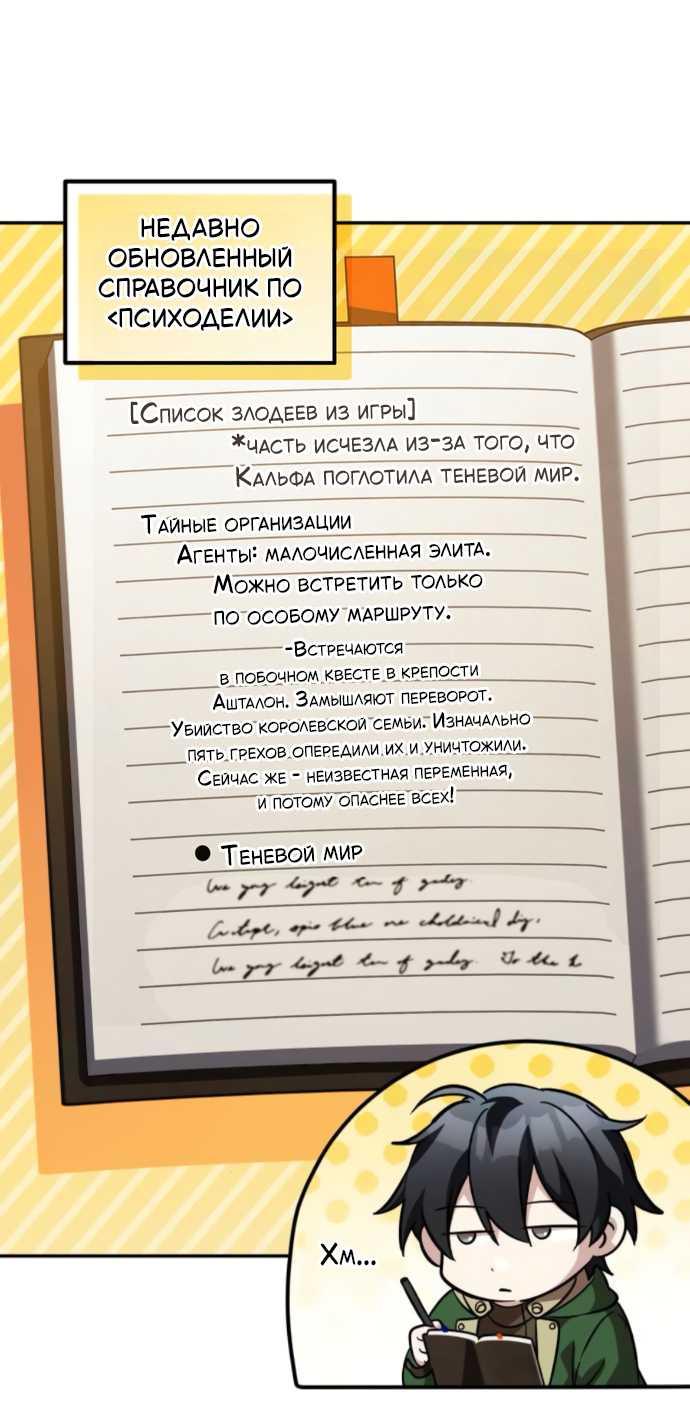 НЕДАВНО
ОБНОВЛЕННЫЙ
СПРАВОЧНИК ПО
<ПСИХОДЕЛИИ>
[Список злодеев из игры]
*часть исчезла из-за того, что
Кальфа поглотила теневой мир.
Тайные организации
Агенты: малочисленная элита.
Можно встретить только
по особому маршруту.
-Встречаются
в побочном квесте в крепости
Ашталон. Замышляют переворот.
Убийство королевской семьи. Изначально
пять грехов опередили их и уничтожили.
Сейчас же - неизвестная переменная,
и потому опаснее всех!
● Теневой мир
Хм...